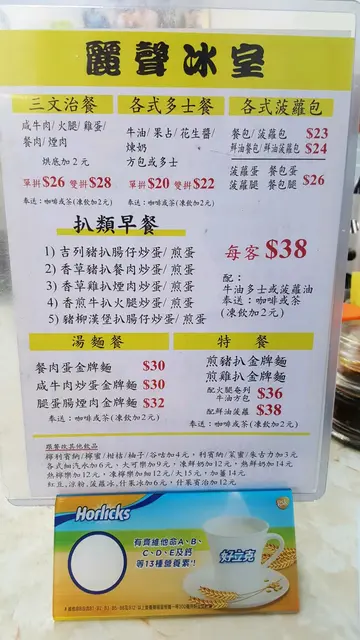 麗聲冰室
三文治餐
咸牛肉/火腿/雞蛋/
餐肉/煙肉
烘底加2元
單拼$26 雙拼$28
奉送:咖啡或茶(凍飲加2元)
各式多士餐
牛油/果占/花生醬/
煉奶
方包或多士
單拼$20 雙拼$22
奉送:咖啡或茶(凍飲加2元)
各式菠蘿包
餐包/菠蘿包 $23
鮮油餐包/鮮油菠蘿包 $24
菠蘿蛋 餐包蛋
菠蘿腿 餐包腿 $26
扒類早餐
1) 吉列豬扒腸仔炒蛋/煎蛋
2) 香草豬扒餐肉炒蛋/煎蛋
3) 香草雞扒煙肉炒蛋/煎蛋
4) 香煎牛扒火腿炒蛋/煎蛋
5) 豬柳漢堡扒腸仔炒蛋/煎蛋
每客 $38
配:
牛油多士或菠蘿油
奉送:咖啡或茶
(凍飲加2元)
湯麵餐
餐肉蛋金牌麵 $30
咸牛肉蛋金牌麵 $30
腿蛋腸煙肉金牌麵 $32
奉送:咖啡或茶(凍飲加2元)
特餐
煎豬扒金牌麵
煎雞扒金牌麵
配火腿奄列
牛油方包 $36
配鮮油菠蘿 $38
奉送:咖啡或茶(凍飲加2元)
跟餐飲其他飲品
各式細汽水加6元,大可樂加9元,凍鮮奶加12元,熱鮮奶加14元
熱檸樂加12元,凍檸樂加細12元/大15元,加薑14元
紅豆,涼粉,菠蘿冰,什果冰加6元,什果賓治加12元
Horlicks
有齊維他命A、B、
C、D、E及鈣
等13種營養素!!
好立克